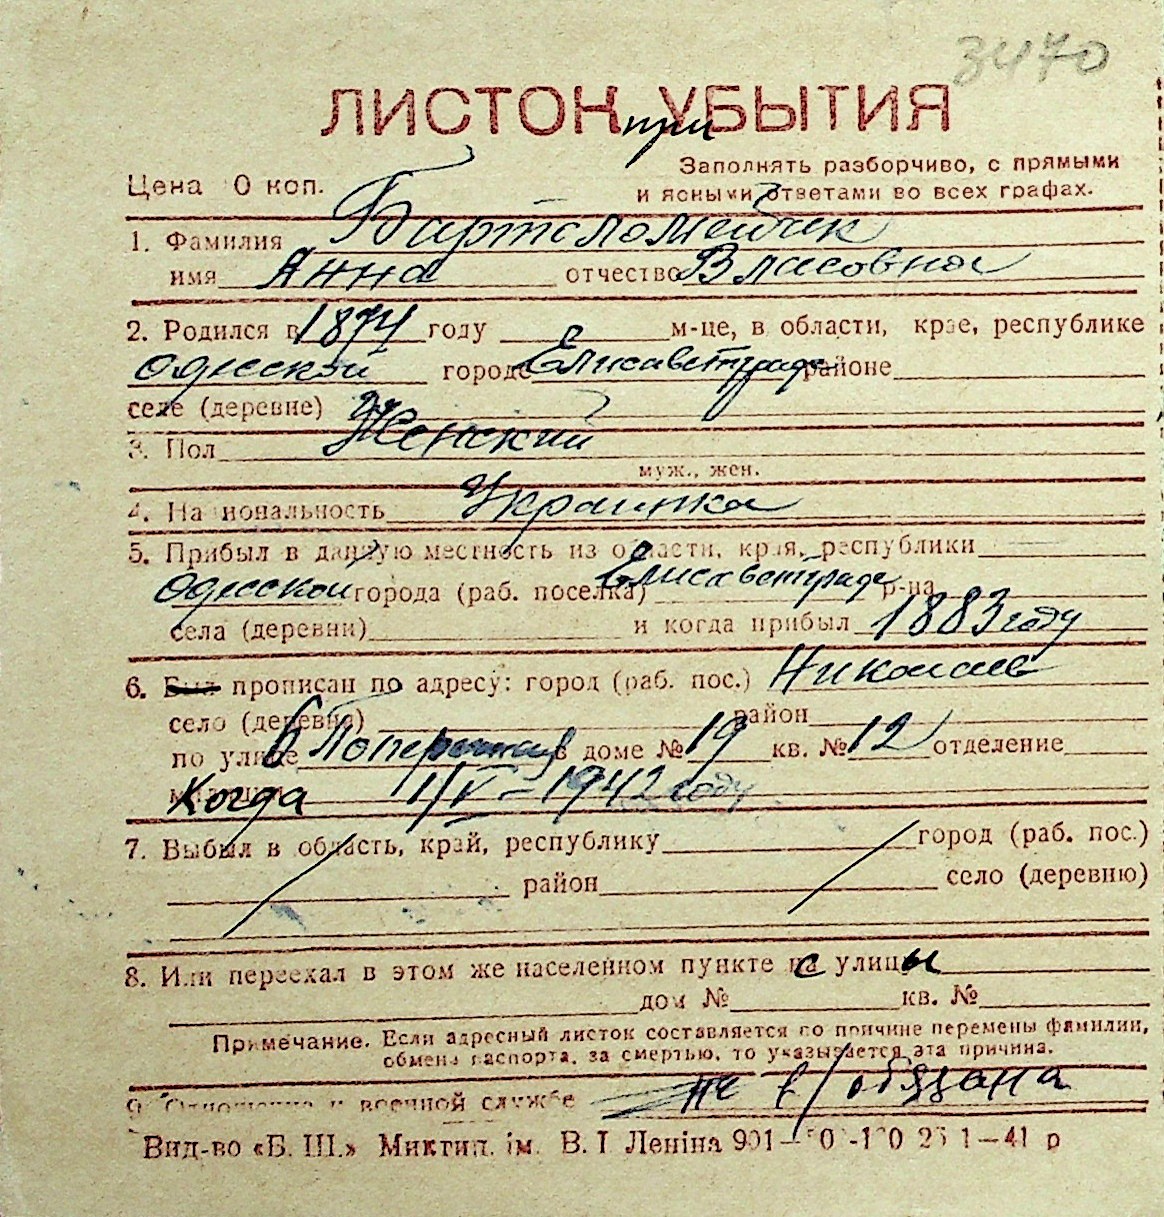 3470
ЛИСТОК при УБЫТИЯ
Заполнять разборчиво, с прямыми
Цена 0 коп.
и ясными ответами во всех графах.
1. Фамилия Бартоломейчик
имя Анна отчество Власовна
2. Родился в 1874 году м-це, в области, крае, республике
одесской городе Елисаветграде районе
селе (деревне)
3. Пол Женский
муж., жен.
4. Национальность Украинка
5. Прибыл в данную местность из области, края, республики
одесской города (раб. поселка) Елисаветграде р-на
села (деревни) и когда прибыл 1883 году
6. Был прописан по адресу: город (раб. пос.) Николаев
село (деревня) район
по улице 6 Поперечная в доме № 19 кв. № 12 отделение
Когда 1/V – 1942 году
7. Выбыл в область, край, республику город (раб. пос.)
район село (деревню)
8. Или переехал в этом же населенном пункте с улицы
дом № кв. №
Примечание. Если адресный листок составляется по причине перемены фамилии,
обмена паспорта, за смертью, то указывается эта причина.
9. Отношение к военной службе не в/обязана
Вид-во «Б. Ш.» Миктип. ім. В. І Леніна 901